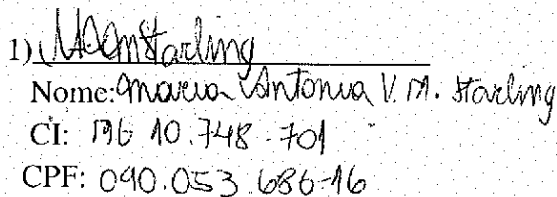 1) MAVMStarling
Nome: Maria Antonia V. M. Starling
CI: MG 10.748-701
CPF: 090.053.686-16